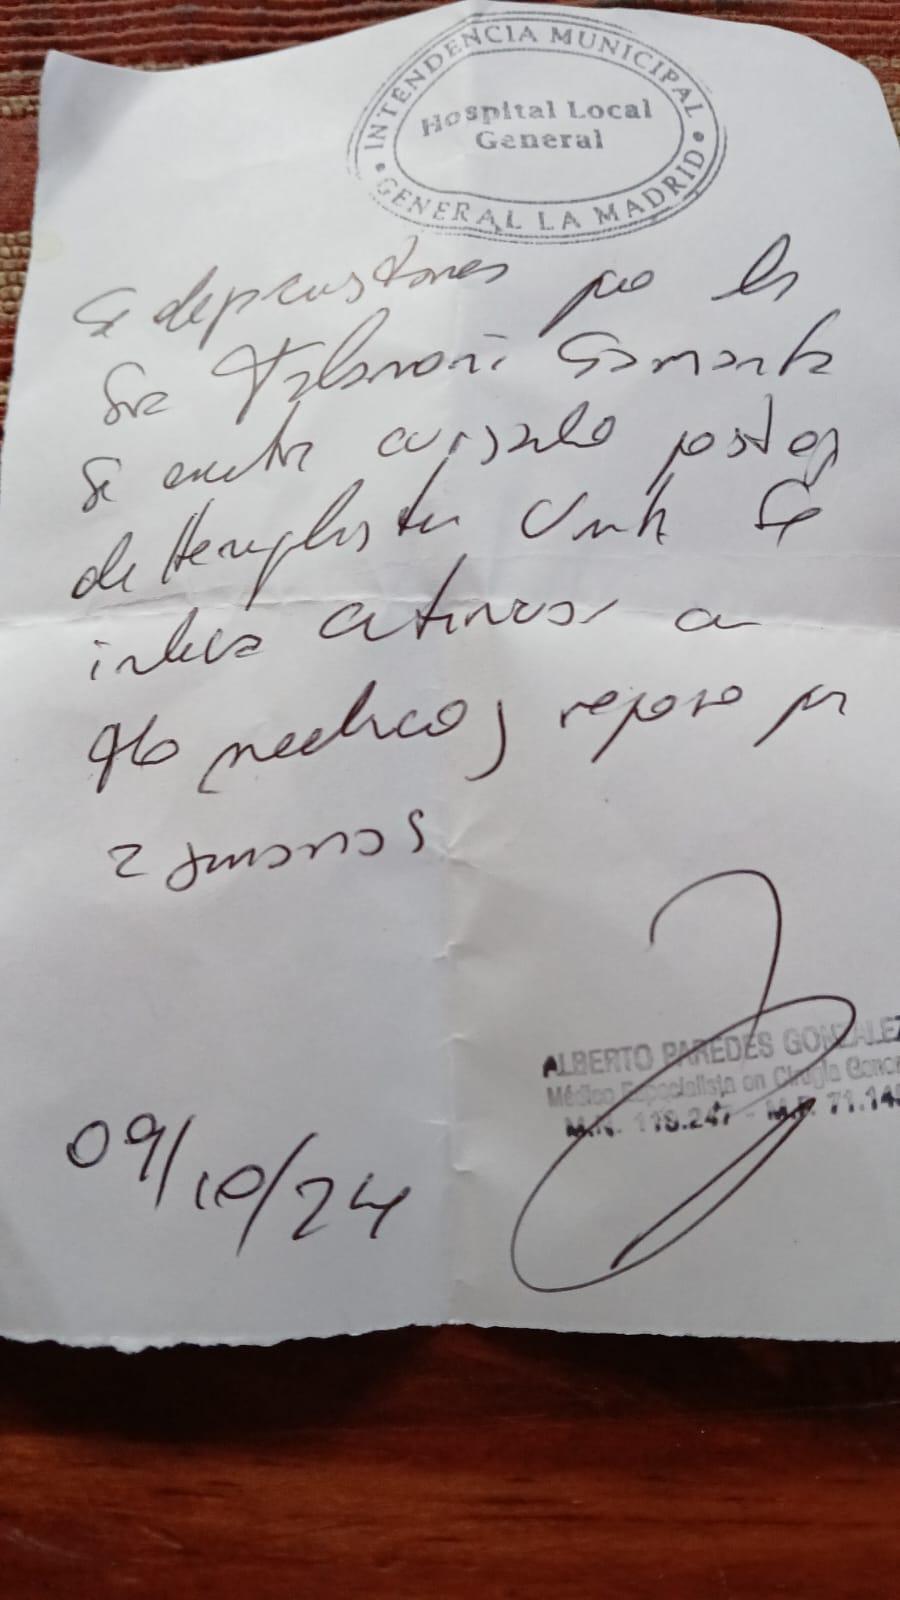 INTENDENCIA MUNICIPAL
Hospital Local
General
GENERAL LA MADRID
Se deja constancia que la
Sra Samanta
Se cursando postop
de Hernioplastia Se
indica continuar con
tto medico y reposo por
2 semanas
09/10/24
ALBERTO PAREDES GONZALEZ
Médico Especialista en Cirugía General
M.N. 118.247 - M.P. 71.14